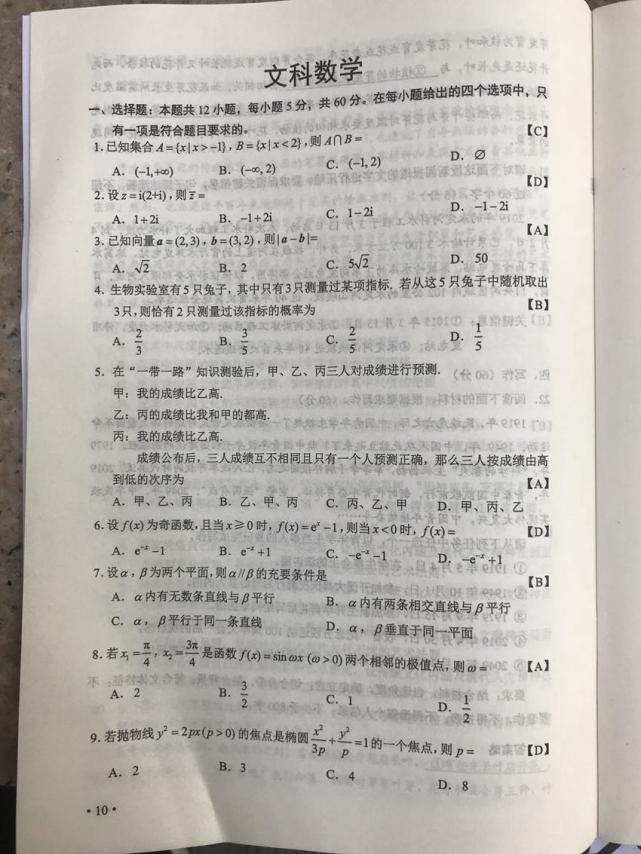 文科数学
一、选择题：本题共12小题，每小题5分，共60分。在每小题给出的四个选项中，只
有一项是符合题目要求的。
1. 已知集合 A={x|x>-1}，B={x|x<2}，则 A∩B= 【C】
A. (-1,+∞) B. (-∞, 2) C. (-1, 2) D. ∅
2. 设 z=i(2+i)，则 z̄= 【D】
A. 1+2i B. -1+2i C. 1-2i D. -1-2i
3. 已知向量 a=(2,3)，b=(3,2)，则|a-b|= 【A】
A. √2 B. 2 C. 5√2 D. 50
4. 生物实验室有5只兔子，其中只有3只测量过某项指标. 若从这5只兔子中随机取出
3只，则恰有2只测量过该指标的概率为 【B】
A. 2/3 B. 3/5 C. 2/5 D. 1/5
5. 在“一带一路”知识测验后，甲、乙、丙三人对成绩进行预测.
甲：我的成绩比乙高.
乙：丙的成绩比我和甲的都高.
丙：我的成绩比乙高.
成绩公布后，三人成绩互不相同且只有一个人预测正确，那么三人按成绩由高
到低的次序为 【A】
A. 甲、乙、丙 B. 乙、甲、丙 C. 丙、乙、甲 D. 甲、丙、乙
6. 设 f(x) 为奇函数，且当 x≥0 时，f(x)=eˣ-1，则当 x<0 时，f(x)= 【D】
A. e⁻ˣ-1 B. e⁻ˣ+1 C. -e⁻ˣ-1 D. -e⁻ˣ+1
7. 设 α，β 为两个平面，则 α//β 的充要条件是 【B】
A. α 内有无数条直线与 β 平行 B. α 内有两条相交直线与 β 平行
C. α，β 平行于同一条直线 D. α，β 垂直于同一平面
8. 若 x₁=π/4，x₂=3π/4 是函数 f(x)=sin ωx (ω>0) 两个相邻的极值点，则 ω= 【A】
A. 2 B. 3/2 C. 1 D. 1/2
9. 若抛物线 y²=2px(p>0) 的焦点是椭圆 x²/3p+y²/p=1 的一个焦点，则 p= 【D】
A. 2 B. 3 C. 4 D. 8
·10·